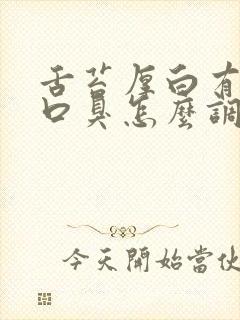 舌苔厚白有
口臭怎麼調
今天開始當伙